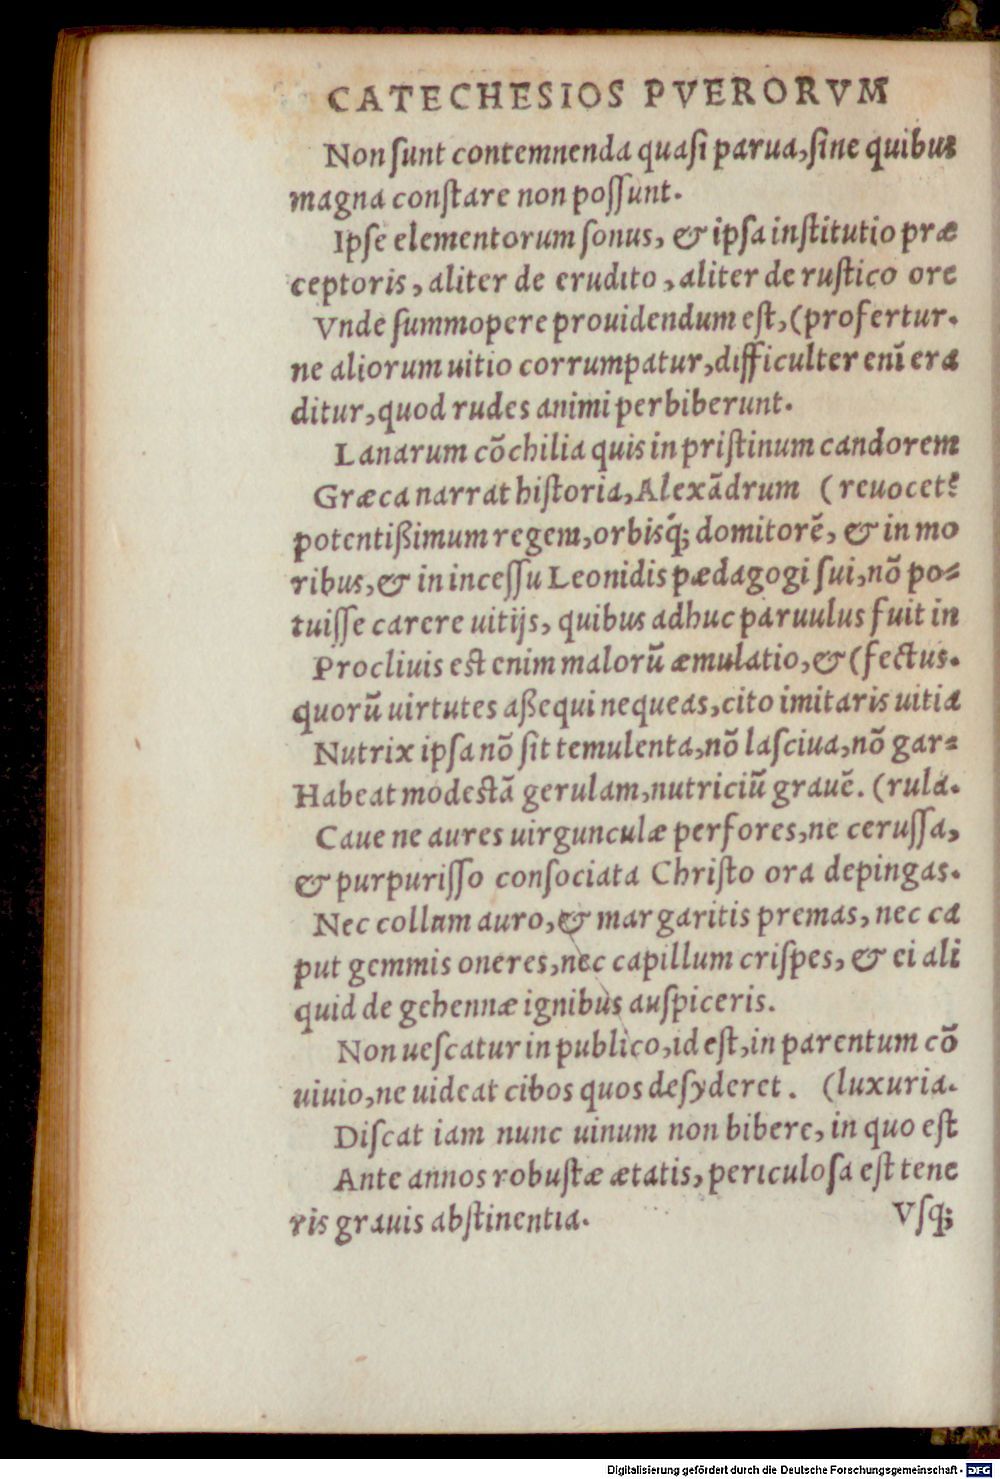 CATECHESIOS PVERORVM
Non ſunt contemnenda quaſi parua, ſine quibus
magna conſtare non poſſunt.
Ipſe elementorum ſonus, & ipſa inſtitutio præ
ceptoris, aliter de erudito, aliter de ruſtico ore
Vnde ſummopere prouidendum eſt, (profertur.
ne aliorum uitio corrumpatur, difficulter enĩ era
ditur, quod rudes animi perbiberunt.
Lanarum cõchilia quis in priſtinum candorem
Græca narrat hiſtoria, Alexãdrum (reuocet?
potentißimum regem, orbisq́; domitorẽ, & in mo
ribus, & in inceſſu Leonidis pædagogi ſui, nõ po-
tuiſſe carere uitijs, quibus adhuc paruulus fuit in
Procliuis est enim malorũ æmulatio, & (fectus.
quorũ uirtutes aßequi nequeas, cito imitaris uitia
Nutrix ipſa nõ ſit temulenta, nõ laſciua, nõ gar-
Habeat modestã gerulam, nutriciũ grauẽ. (rula.
Caue ne aures uirgunculæ perfores, ne ceruſſa,
& purpuriſſo conſociata Chriſto ora depingas.
Nec collum auro, & margaritis premas, nec ca
put gemmis oneres, nec capillum criſpes, & ei ali
quid de gehennæ ignibus auſpiceris.
Non ueſcatur in publico, id eſt, in parentum cõ
uiuio, ne uideat cibos quos deſyderet. (luxuria.
Diſcat iam nunc uinum non bibere, in quo eſt
Ante annos robuſtæ ætatis, periculoſa eſt tene
ris grauis abſtinentia. Vſq;
Digitalisierung gefördert durch die Deutsche Forschungsgemeinschaft - DFG